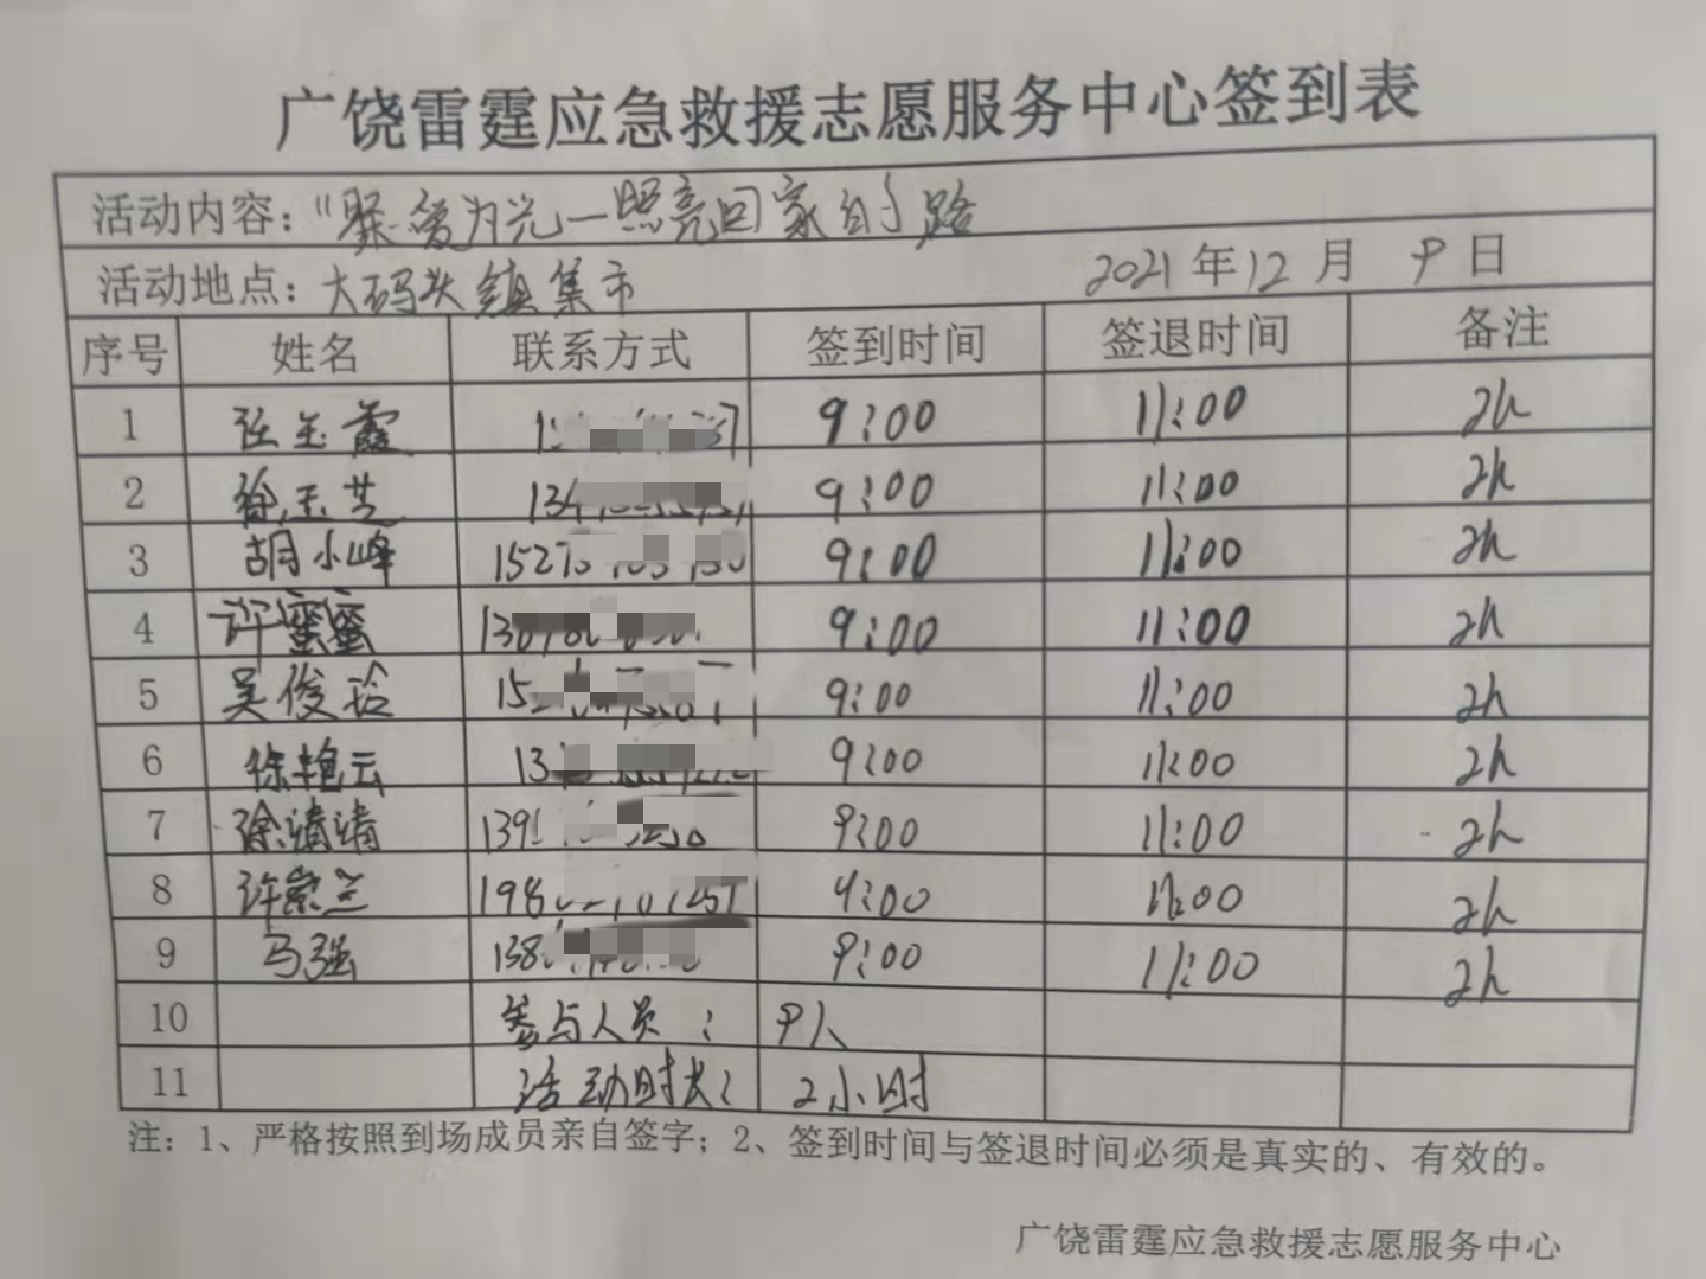 广饶雷霆应急救援志愿服务中心签到表
活动内容：“聚爱为光一照亮回家的路
活动地点：大码头镇集市 2021年12月9日
序号 姓名 联系方式 签到时间 签退时间 备注
1 张玉霞 9:00 11:00 2h
2 徐玉芝 9:00 11:00 2h
3 胡小峰 9:00 11:00 2h
4 许蜜蜜 9:00 11:00 2h
5 吴俊玲 9:00 11:00 2h
6 徐艳云 9:00 11:00 2h
7 徐清清 9:00 11:00 2h
8 许崇兰 9:00 11:00 2h
9 马强 9:00 11:00 2h
10 参与人员： 9人
11 活动时长： 2小时
注：1、严格按照到场成员亲自签字；2、签到时间与签退时间必须是真实的、有效的。
广饶雷霆应急救援志愿服务中心